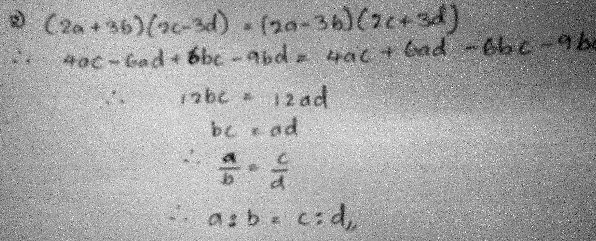 2) (2a+3b)(2c-3d) = (2a-3b)(2c+3d)
∴ 4ac-6ad+6bc-9bd = 4ac+6ad-6bc-9b
∴ 12bc = 12ad
bc = ad
∴ a/b = c/d
∴ a:b = c:d,,